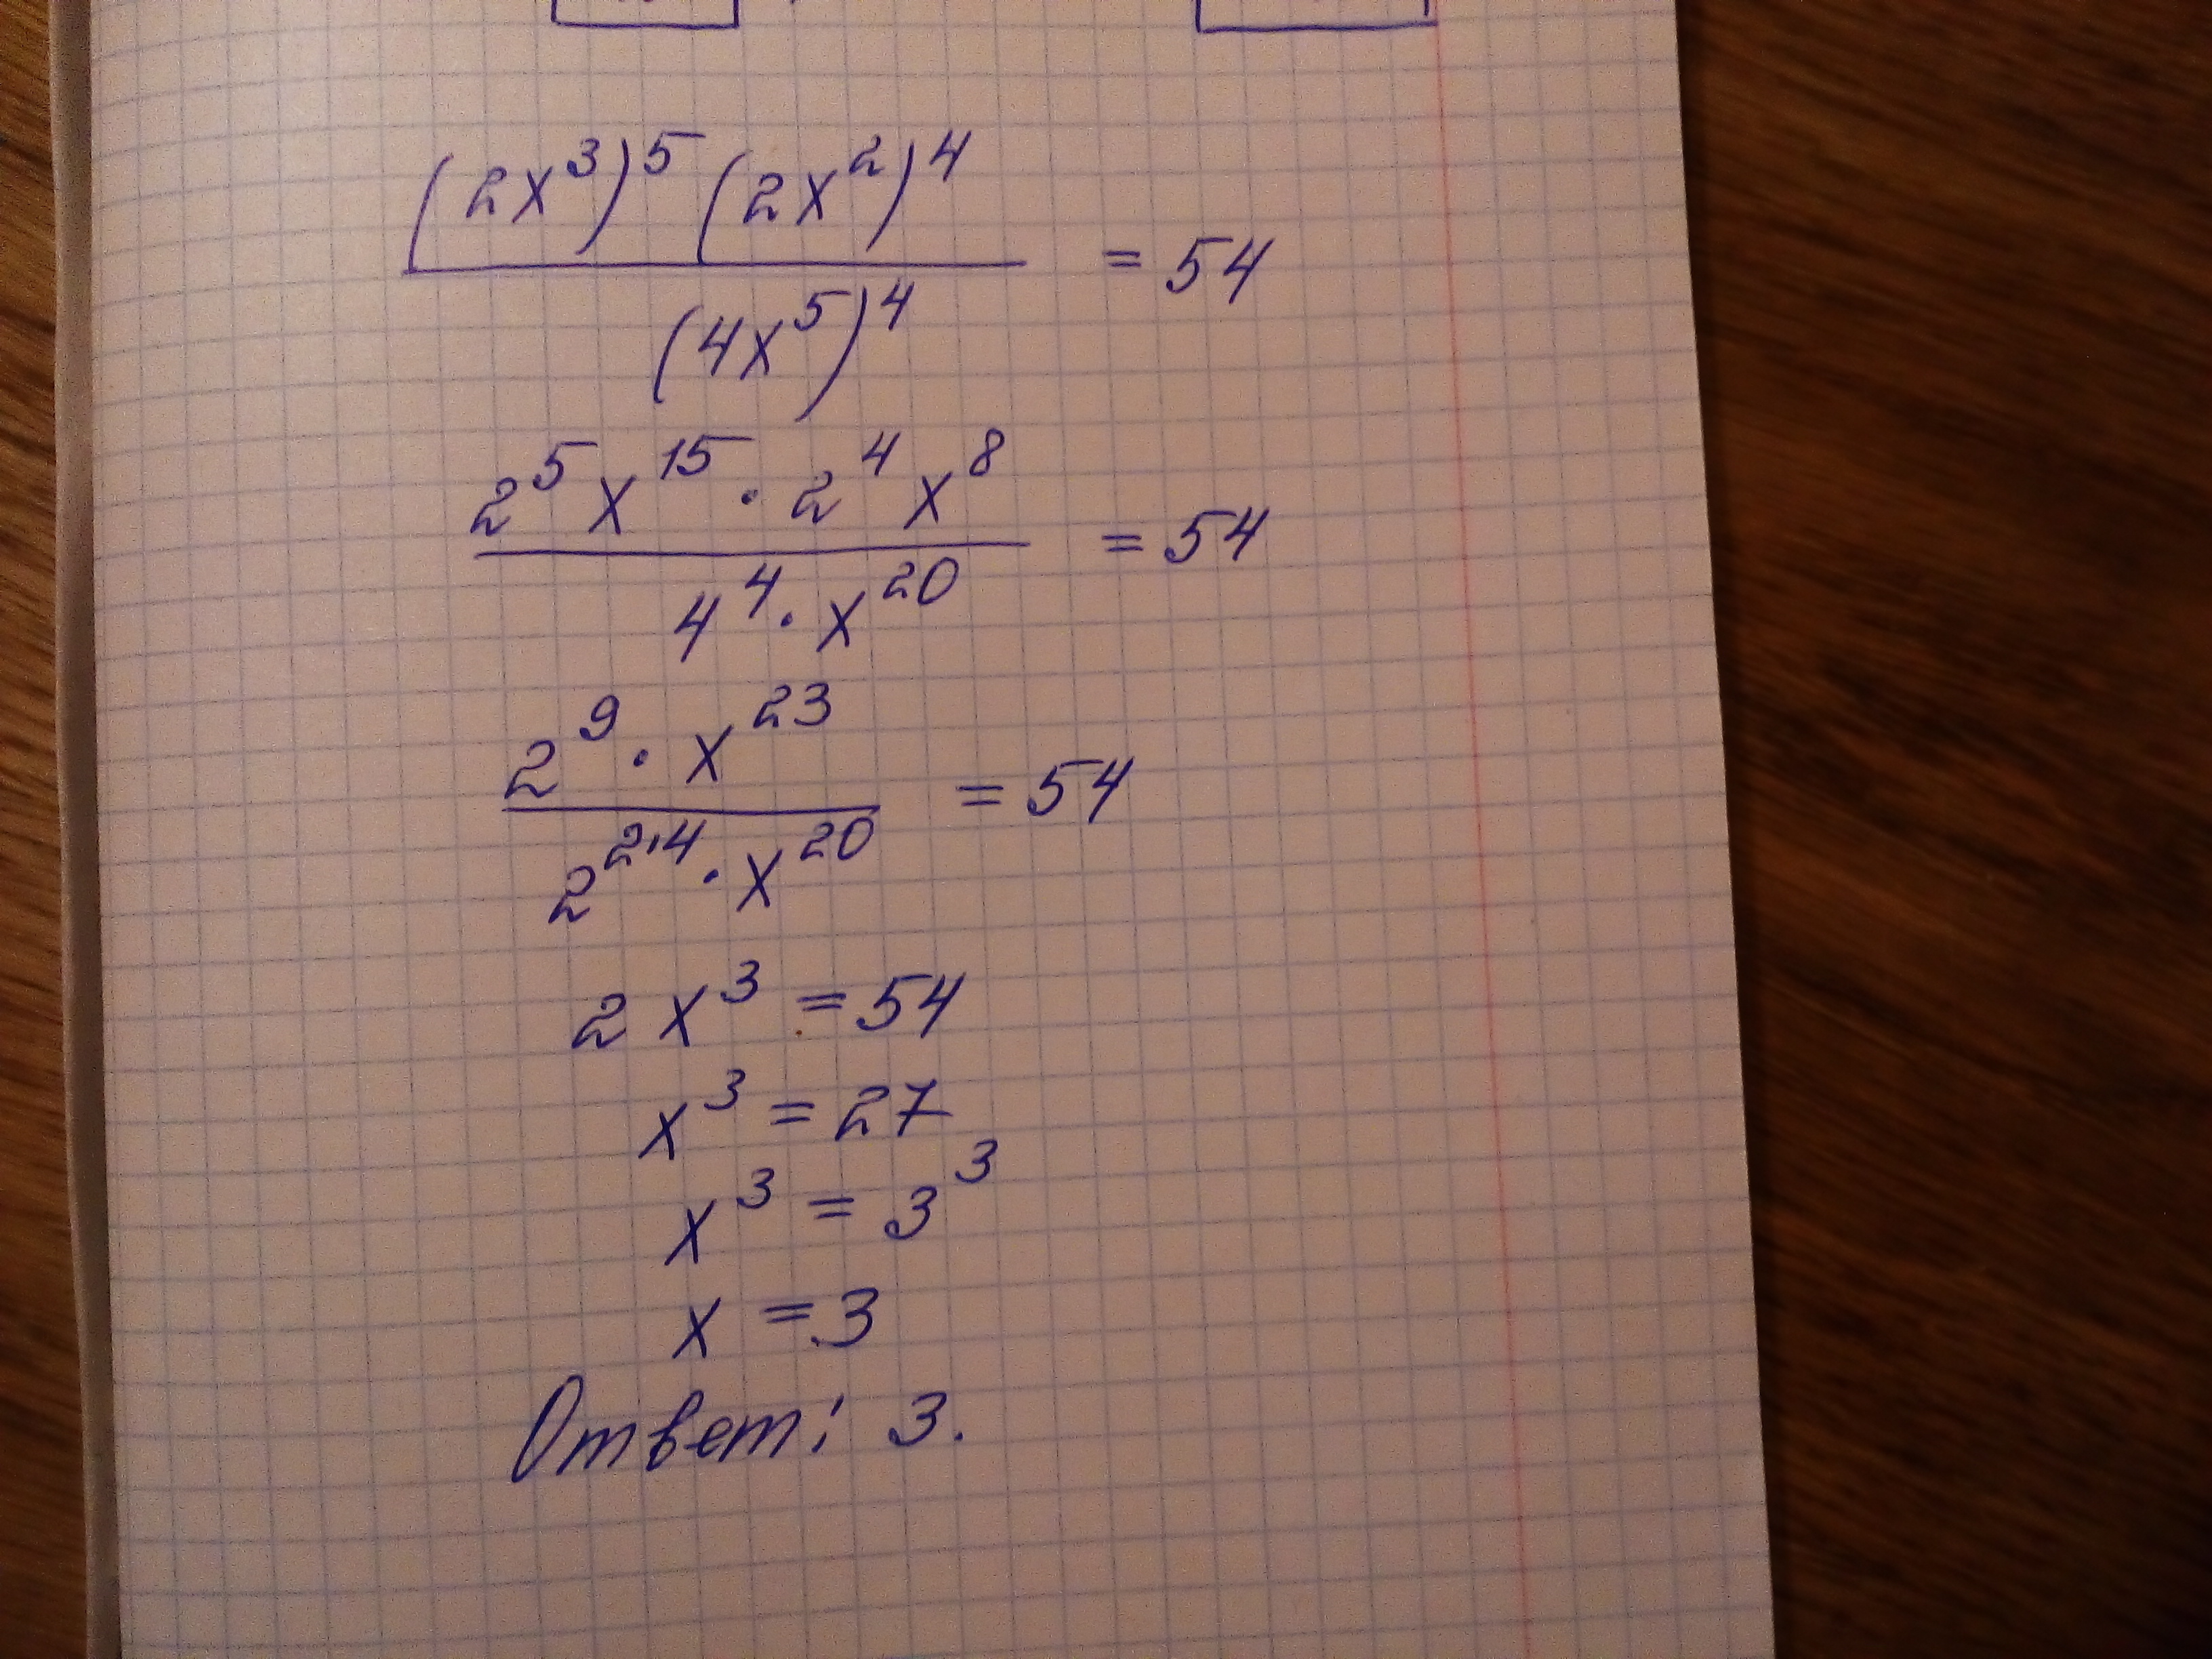 (2x³)⁵(2x²)⁴ / (4x⁵)⁴ = 54
2⁵x¹⁵ · 2⁴x⁸ / 4⁴ · x²⁰ = 54
2⁹ · x²³ / 2²·⁴ · x²⁰ = 54
2x³ = 54
x³ = 27
x³ = 3³
x = 3
Ответ: 3.